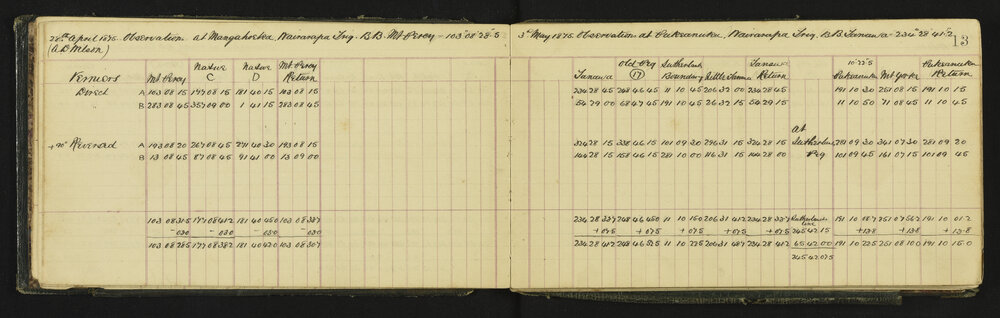 28th April 1875 Observation at Mangahoeka, Wairarapa Trig. B.B. Mt Percy – 103° 08' 28".5
(A. D. Wilson)
Verniers Mt Percy Native C Native D Mt Percy Return
Direct A 103 08 15 177 08 15 181 40 15 103 08 15
" B 283 08 45 357 09 00 1 41 15 283 08 45
+90° Reversed A 193 08 20 267 08 45 271 40 30 193 08 15
B 13 08 45 87 08 45 91 41 00 13 09 00
103 08 31.5 177 08 41.2 181 40 45.0 103 08 33.7
– 03.0 – 03.0 – 03.0
103 08 28.5 177 08 38.2 181 40 42.0 103 08 30.7
3rd May 1875 Observation at Pukeanuka, Wairarapa Trig. B.B. Tanawa – 234° 28' 41".2
13
Tanawa Old Peg (17) Sutherland Boundary Tanawa Return
234 28 45 248 46 45 11 10 45 206 32 00 234 28 45
54 29 00 68 47 45 191 10 45 26 32 15 54 29 15
324 28 15 338 46 15 101 09 30 296 31 15 324 28 15
144 28 15 158 46 15 281 10 00 116 31 15 144 28 00
234 28 33.7 248 46 45.0 11 10 15.0 206 31 41.2 234 28 33.7
+ 07.5 + 07.5 + 07.5 + 07.5 + 07.5
234 28 41.2 248 46 52.5 11 10 22.5 206 31 48.7 234 28 41.2
At Sutherland Peg
10.22.5
Pukeanuka Mt Yorke Pukeanuka Return
191 10 30 251 08 15 191 10 15
11 10 50 71 08 45 11 10 45
281 09 30 341 07 30 281 09 20
101 09 45 161 07 15 101 09 45
Sutherland line
245 42 15
65 42 00
245 42 07.5
191 10 08.7 251 07 56.2 191 10 01.2
+ 13.8 + 13.8 + 13.8
191 10 22.5 251 08 10.0 191 10 15.0